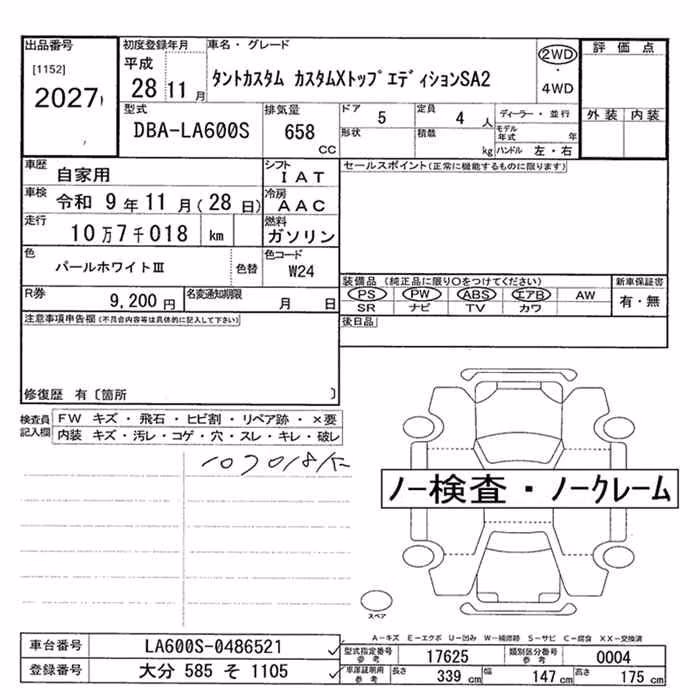 出品番号 初度登録年月 車名・グレード 評価点
[1152] 平成 2WD
2027 28 11月 タントカスタム カスタムXトップエディションSA2 ・
4WD
型式 排気量 ドア 5 定員 4人 ディーラー・並行 外装 内装
DBA-LA600S 658 CC 形状 積載 kg モデル年式 年
ハンドル 左・右
車歴 自家用 シフト IAT セールスポイント(正常に機能するものに限ります)
車検 令和 9年 11月(28日) 冷房 AAC
走行 10万7千018 km 燃料 ガソリン
色 パールホワイトⅢ 色替 色コード W24
装備品 (純正品に限り○をつけてください) 新車保証書
PS PW ABS エアB AW 有・無
SR ナビ TV カワ
R券 9,200円 名変通知期限 月 日
後日品
注意事項申告欄 (不具合内容等は具体的に記入して下さい)
修復歴 有〔箇所 〕
検査員記入欄 FW キズ・飛石・ヒビ割・リペア跡・×要
内装 キズ・汚レ・コゲ・穴・スレ・キレ・破レ
107018K
ノー検査・ノークレーム
スペア
A-キズ E-エクボ U-凹み W-補修跡 S-サビ C-腐食 XX-交換済
車台番号 LA600S-0486521 型式指定番号 参考 17625 類別区分番号 参考 0004
登録番号 大分 585 そ 1105 車庫証明用 参考 長さ 339 cm 幅 147 cm 高さ 175 cm